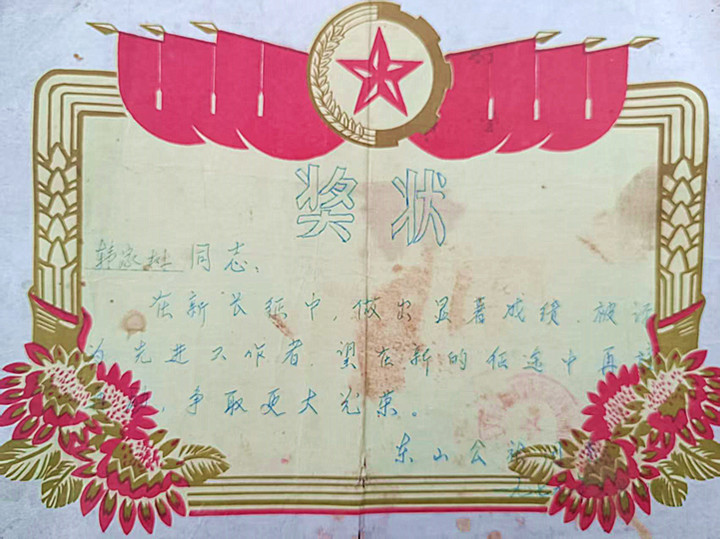 奖状
韩家树同志、
在新长征中,做出显著成绩.被评
为先进工作者.望在新的征途中再接
,争取更大光荣。
东山公社